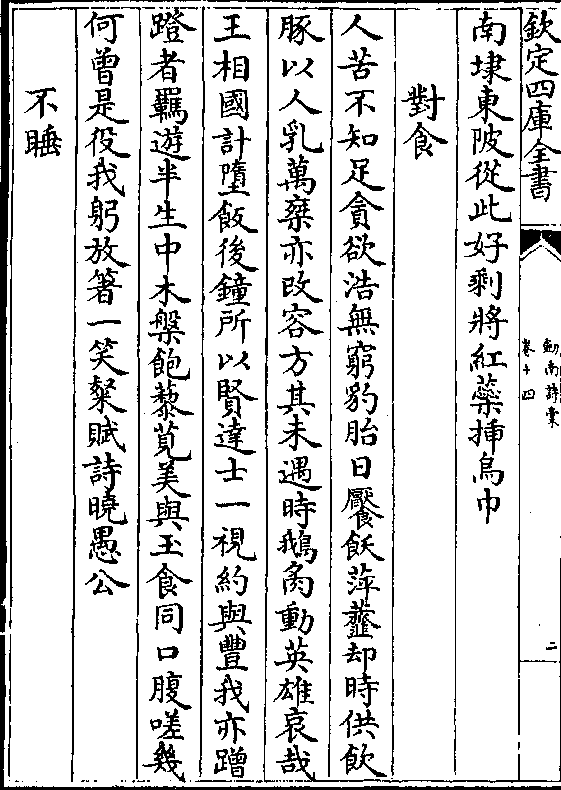 欽定四庫全書
劒南詩稾
卷十四
二
南埭東陂從此好剩將紅蘂挿烏巾
對食
人苦不知足貪欲浩無窮豹胎日饜飫萍虀却時供飲
豚以人乳萬棄亦改容方其未遇時鵝臠動英雄哀哉
王相國計墮飯後鐘所以賢達士一視約與豐我亦蹭
蹬者羈遊半生中木槃飽藜莧美與玉食同口腹嗟幾
何曾是役我躬放箸一笑粲賦詩曉愚公
不睡